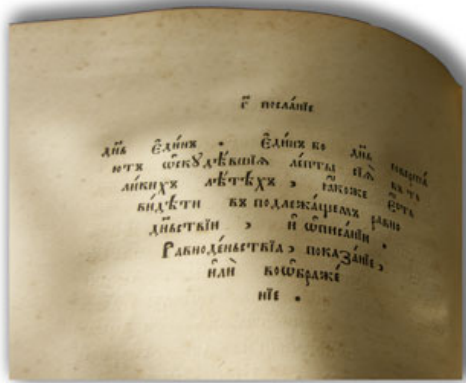 г҃ посла́нїе
дн҃ь є҆ди́нъ . Є҆ди́нъ бо дн҃ь
ютъ ѡ҆скꙋдѣ́вшїѧ ле́пты сїѧ̀ въ то
ли́кихъ лѣ́тѣхъ , ꙗ҆́коже є҆́сть
ви́дѣти въ подлежа́щемъ равно
дн҃ьствїи , и҆ ѡ҆писа́нїи .
Равноде́ньствїѧ , показа́нїе ,
и҆лѝ воѡ҆браже́
нїе .